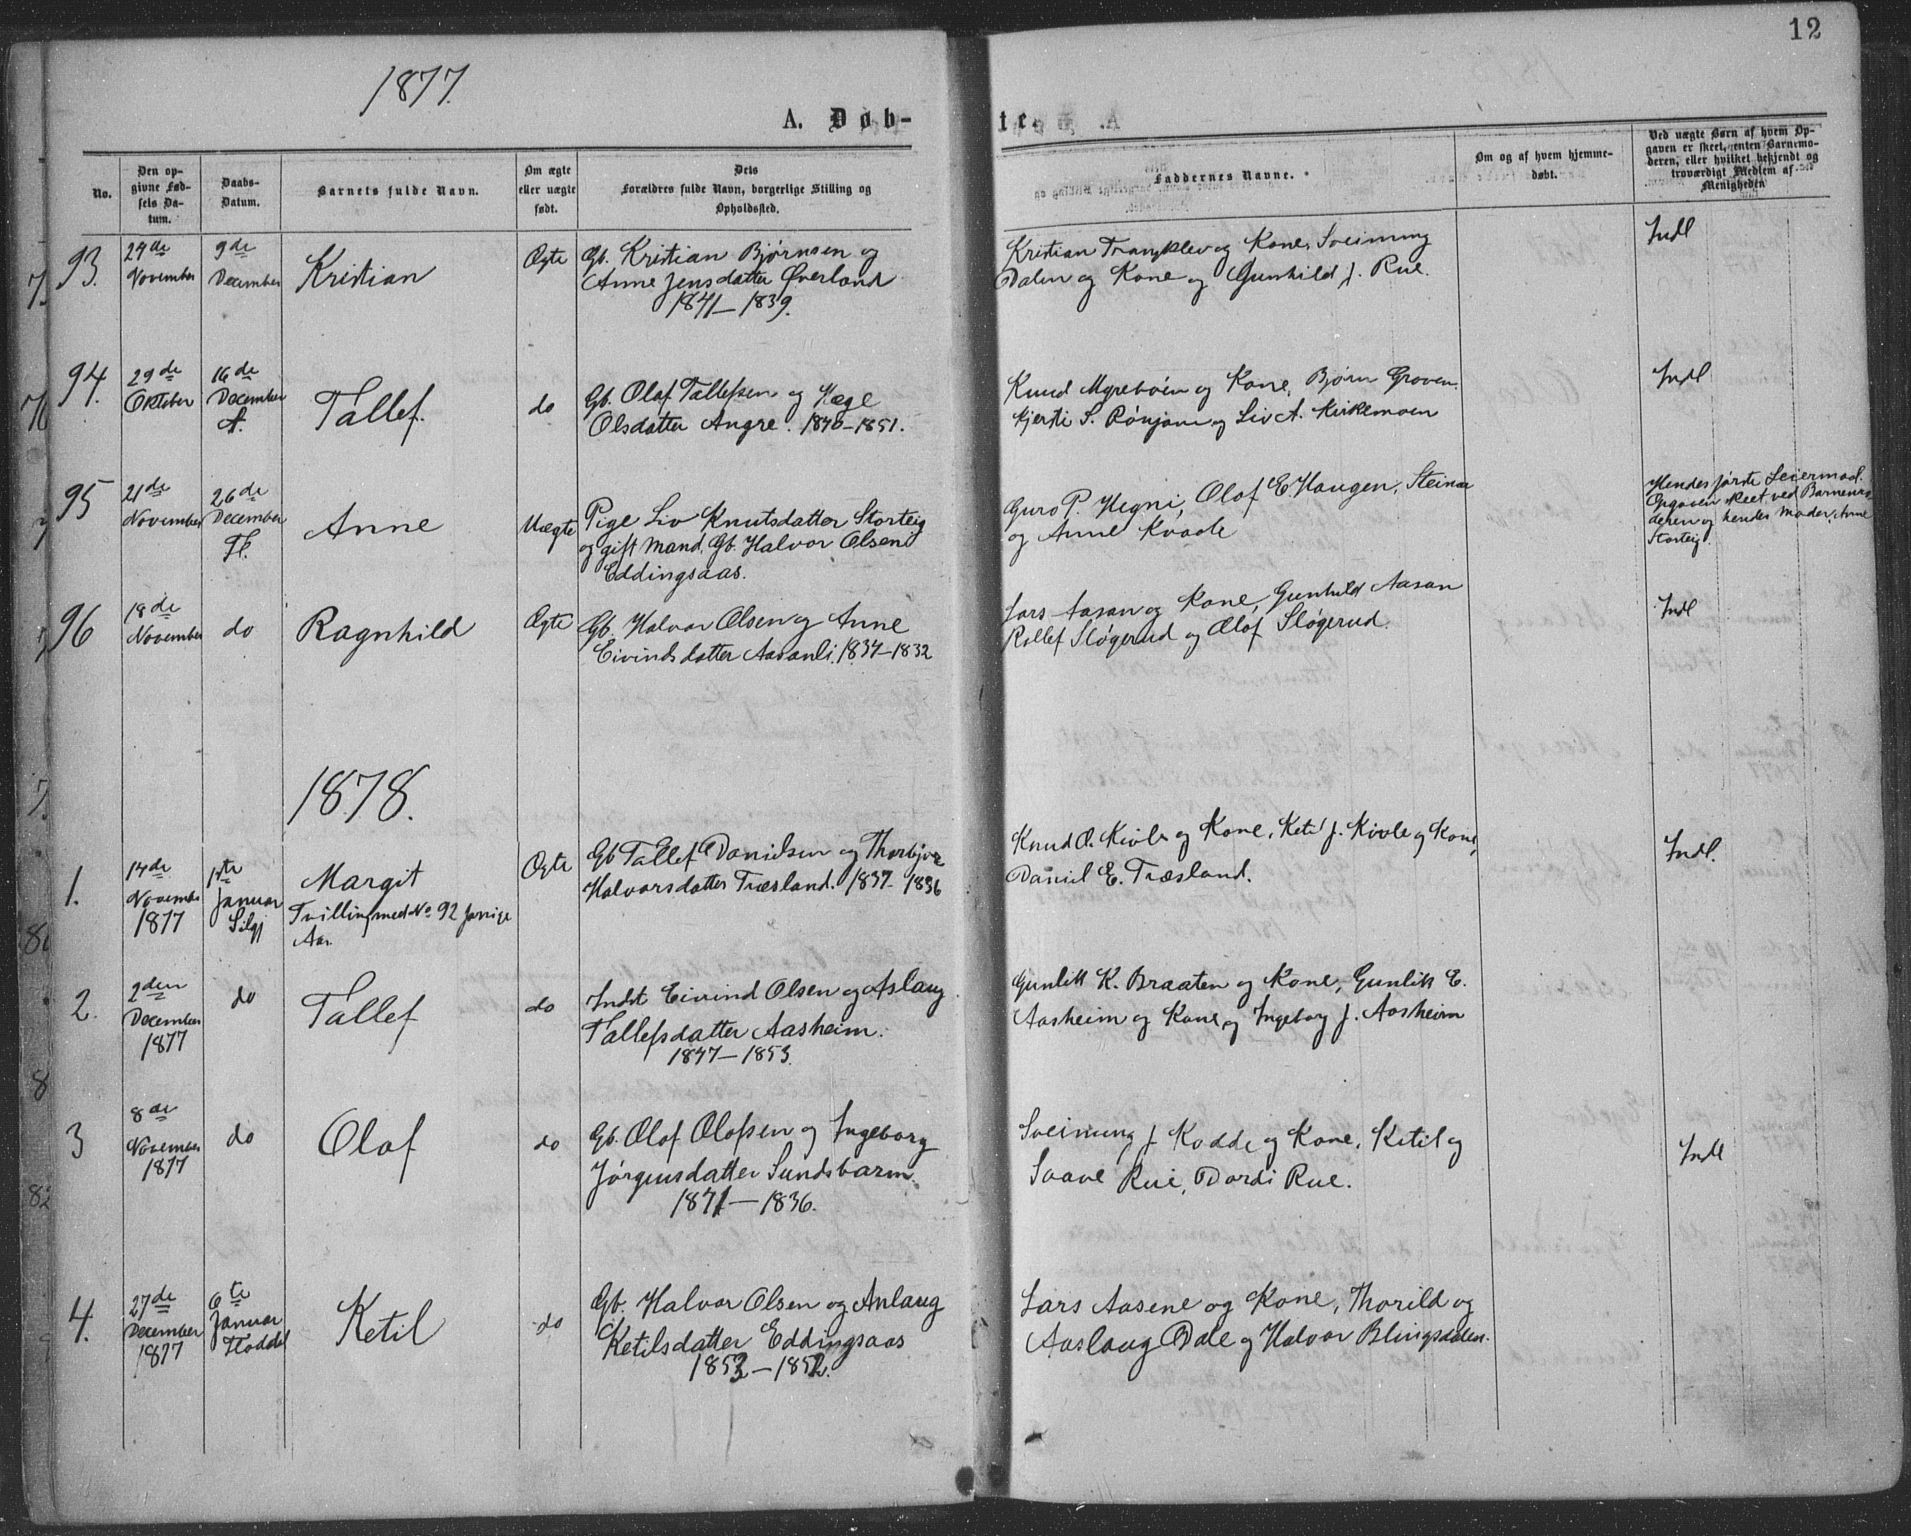 12
1877.
A. Døb-
te.
No.
Den op-
givne Fød-
sels Da-
tum.
Daabs-
Datum.
Barnets fulde Navn.
Om ægte
eller uægte
født.
Dets
Forældres fulde Navn, borgerlige Stilling og
Opholdssted.
Faddernes Navne.
Om og af hvem hjemme-
døbt.
Ved uægte Børn af hvem Op-
gaven er skeet, enten Barnemo-
deren, eller hvilket bekjendt og
troværdigt Medlem af
Menigheden
93.
November
9de
December
Kristian
Ægte
Gb. Kristian Bjørnsen og
Anne Jensdatter Øverland
1841–1839.
Kristian og Kone, Sveinung
Dalen og Kone og Gunhild J. Rue.
Indl
94.
29de
Oktober
16de
December
A.
Tallef.
do
Gb. Olaf Tallefsen og Hæge
Olsdatter Angre. 1846–1851.
Knud Myrebøen og Kone, Bjørn Groven
Kjersti S. Rønjom og Liv A. Kirkemoen
Indl
95
21de
November
26de
December
Fl.
Anne
Uægte
Pige Liv Knutsdatter Storteig
og gift Mand, Gb. Halvor Olsen
Eddingsaas.
Guro P. Hegni, Olaf E. Haugen, Steinar
og Anne Kvaale
Hendes første Leiermaal.
Opgaven skeet ved Barnemo-
deren og hendes Moder, Anne
Storteig.
96
18de
November
do
Ragnhild
Ægte
Gb. Halvor Olsen og Anne
Eivindsdatter Aasanli. 1834–1832
Lars Aasan og Kone, Gunhild Aasan
Rollef Sløgerud og Olof Sløgerud.
Indl
1878.
1.
14de
November
1877
1ste
Januar
Silgj
Margit
Tvilling med No 92 forrige
Aar.
Ægte
Gb Tallef Danielsen og Thorbjør
Halvorsdatter Træsland. 1837–1836
Knud O. Kivle og Kone, Ketil J. Kivle og Kone,
Daniel E. Træsland.
Indl.
2.
2den
December
1877
do
Tallef
do
Indst Eivind Olsen og Aslaug
Tallefsdatter Aasheim.
1847–1853
Gunlik K. Braaten og Kone, Gunlik E.
Aasheim og Kone og Ingeborg J. Aasheim
3
8de
November
1877
do
Olaf
do
Gb. Olaf Olafsen og Ingeborg
Jørgensdatter Sundsbarm.
1841–1836.
Sveinung J. Kodde og Kone, Ketil og
Saave Rue, Dordi Rue.
Indl
4.
27de
December
1877
6te
Januar
Flaabd
Ketil
do
Gb. Halvor Olsen og Anlaug
Ketilsdatter Eddingsaas
1853–1852.
Lars Aasene og Kone, Thorild og
Aaslaug Dale og Halvor Blingsdalen.